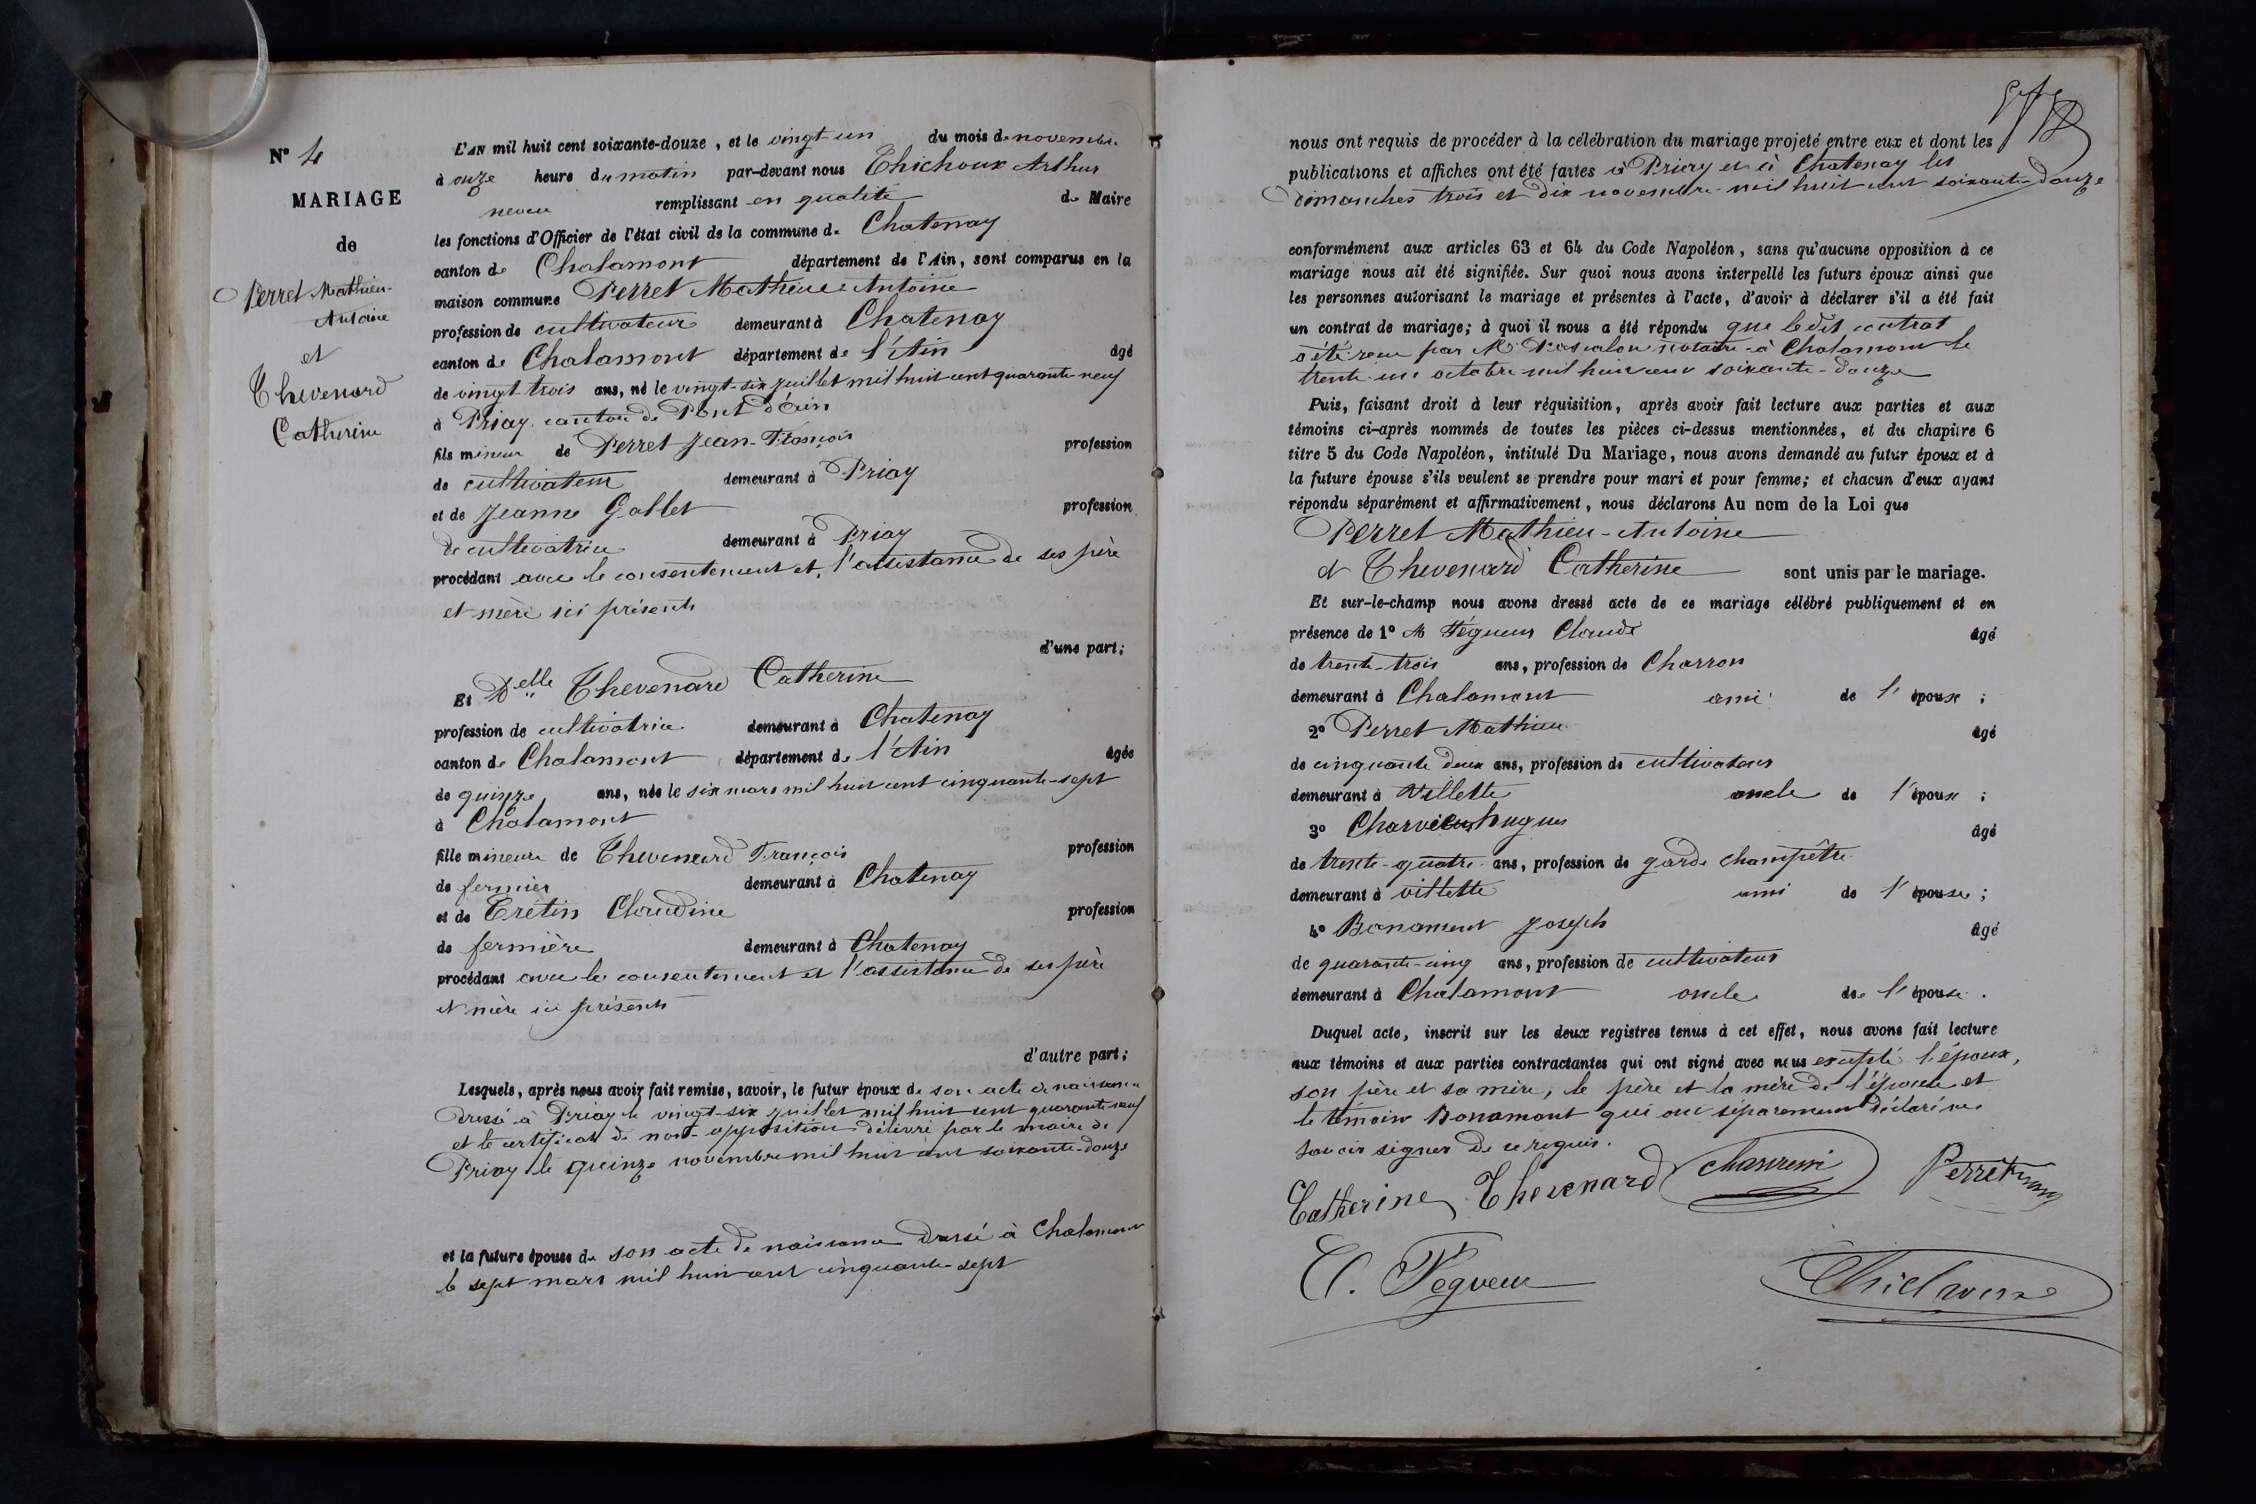 N° 4
MARIAGE
de
Perret Mathieu-
Antoine
et
Thevenard
Catherine
L'AN mil huit cent soixante-douze, et le vingt-un du mois de novembre
à onze heure du matin par-devant nous Thichoux Arthur
remplissant en qualité de Maire
les fonctions d'Officier de l'état civil de la commune de Chatenay
canton de Chalamont département de l'Ain, sont comparus en la
maison commune Perret Mathieu-Antoine
profession de cultivateur demeurant à Chatenay
canton de Chalamont département de l'Ain âgé
de vingt-trois ans, né le vingt-six juillet mil huit cent quarante-neuf
à Priay canton de Pont d'Ain
fils mineur de Perret Jean-François profession
de cultivateur demeurant à Priay
et de Jeanne Gallet profession
de cultivatrice demeurant à Priay
procédant avec le consentement et l'assistance de ses père
et mère ici présents
d'une part;
Et Delle Thevenard Catherine
profession de cultivatrice demeurant à Chatenay
canton de Chalamont département de l'Ain âgée
de quinze ans, née le six mars mil huit cent cinquante-sept
à Chalamont
fille mineure de Thevenard François profession
de fermier demeurant à Chatenay
et de Crétin Claudine profession
de fermière demeurant à Chatenay
procédant avec le consentement et l'assistance de ses père
et mère ici présents
d'autre part;
Lesquels, après nous avoir fait remise, savoir, le futur époux de son acte de naissance
dressé à Priay le vingt-six juillet mil huit cent quarante-neuf
et le certificat de non-opposition délivré par le maire de
Priay le quinze novembre mil huit cent soixante-douze
et la future épouse de son acte de naissance dressé à Chalamont
le sept mars mil huit cent cinquante-sept
nous ont requis de procéder à la célébration du mariage projeté entre eux et dont les
publications et affiches ont été faites à Priay et à Chatenay les
dimanches trois et dix novembre mil huit cent soixante-douze
conformément aux articles 63 et 64 du Code Napoléon, sans qu'aucune opposition à ce
mariage nous ait été signifiée. Sur quoi nous avons interpellé les futurs époux ainsi que
les personnes autorisant le mariage et présentes à l'acte, d'avoir à déclarer s'il a été fait
un contrat de mariage; à quoi il nous a été répondu que ledit contrat
a été reçu par Me notaire à Chalamont le
trente-un octobre mil huit cent soixante-douze
Puis, faisant droit à leur réquisition, après avoir fait lecture aux parties et aux
témoins ci-après nommés de toutes les pièces ci-dessus mentionnées, et du chapitre 6
titre 5 du Code Napoléon, intitulé Du Mariage, nous avons demandé au futur époux et à
la future épouse s'ils veulent se prendre pour mari et pour femme; et chacun d'eux ayant
répondu séparément et affirmativement, nous déclarons Au nom de la Loi que
Perret Mathieu-Antoine
et Thevenard Catherine sont unis par le mariage.
Et sur-le-champ nous avons dressé acte de ce mariage célébré publiquement et en
présence de 1° M Pégueur Claude âgé
de trente-trois ans, profession de Charron
demeurant à Chalamont ami de l'époux ;
2° Perret Mathieu âgé
de cinquante deux ans, profession de cultivateur
demeurant à Villette oncle de l'époux ;
3° Charvieux hugues âgé
de trente-quatre ans, profession de garde champêtre
demeurant à villette ami de l'épouse ;
4° Bonamont Joseph âgé
de quarante-cinq ans, profession de cultivateur
demeurant à Chalamont oncle de l'épouse .
Duquel acte, inscrit sur les deux registres tenus à cet effet, nous avons fait lecture
aux témoins et aux parties contractantes qui ont signé avec nous excepté l'époux,
son père et sa mère, le père et la mère de l'épouse et
le témoin Bonamont qui ont séparément déclaré ne
savoir signer de ce requis.
Catherine Thevenard
Perret
C. Pegueur